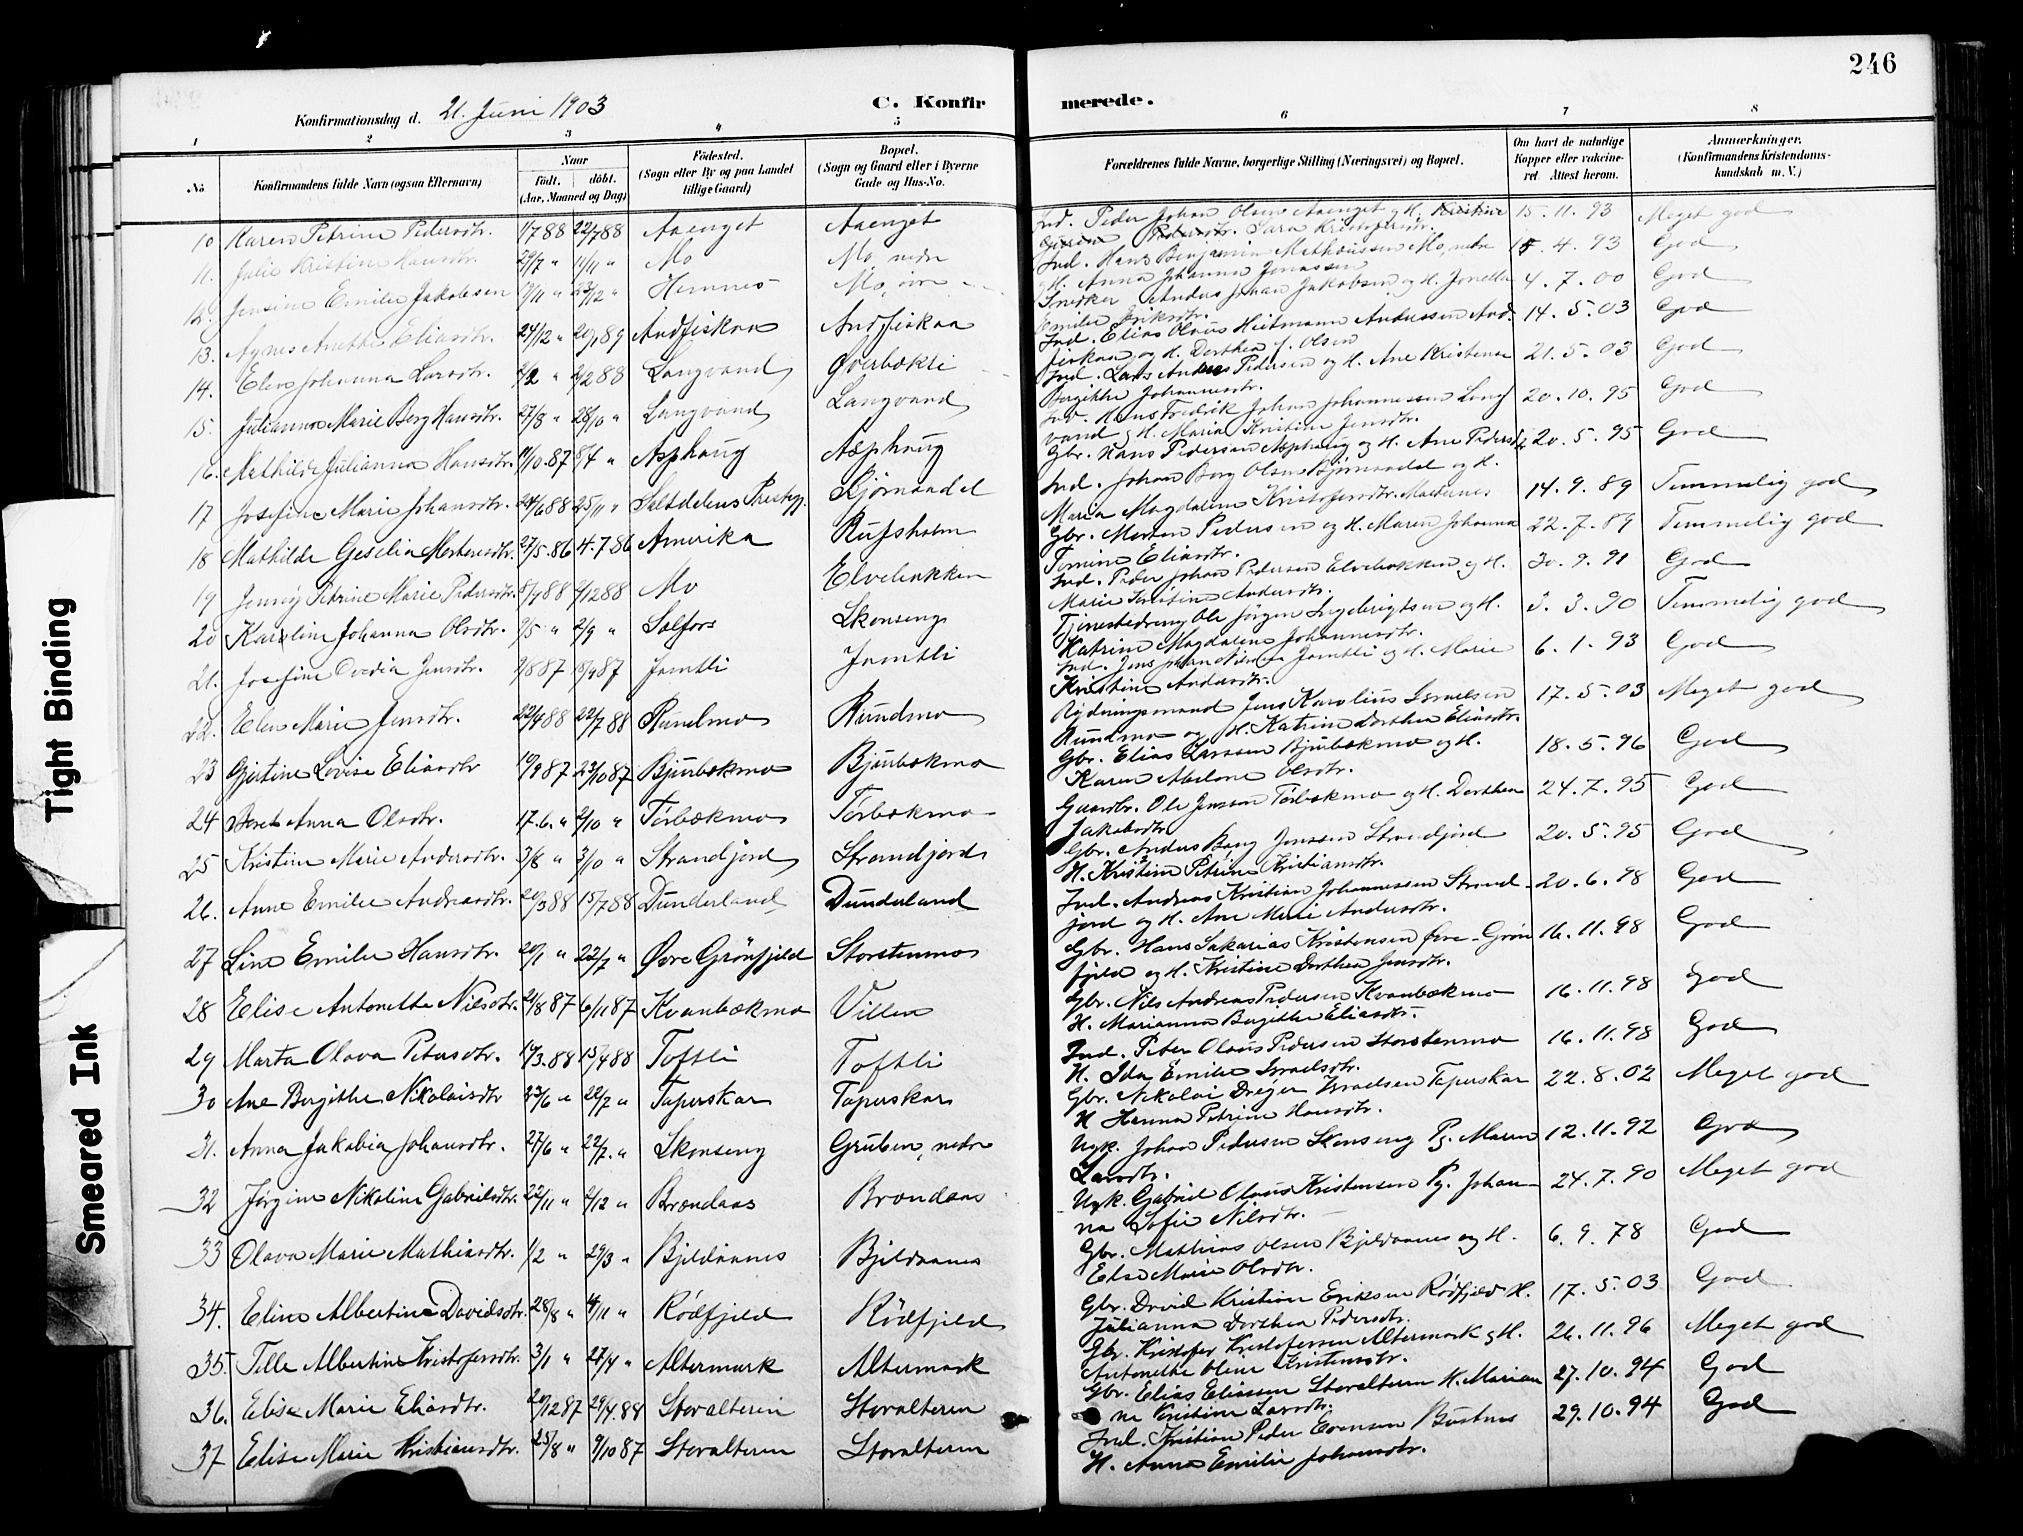 246
Konfirmationsdag d. 21. Juni 1903
C. Konfir
merede.
1 2 3 4 5 6 7 8
No
Konfirmandens fulde Navn (ogsaa Efternavn)
Naar
Födt. döbt.
(Aar, Maaned og Dag)
Födested.
(Sogn eller By og paa Landet
tillige Gaard)
Bopæl.
(Sogn og Gaard eller i Byerne
Gade og Hus-No.
Forældrenes fulde Navne, borgerlige Stilling (Næringsvei) og Bopæl.
Om havt de naturlige
Kopper eller vakcine-
ret Attest herom.
Anmærkninger.
(Konfirmandens Kristendoms-
kundskab m. V.)
10 Karen Petrine Pedersdtr. 22/7 88 Aaenget Aaenget Ind. Peder Johan Olsen Aaenget og H. 15.11.93 Meget god
Sara Kristofersdtr.
11. Julie Kristine Hansdtr. 29/7 " 11/11 " Mo Mo, nedre Ind. Hans Benjamin Matheussen Mo, nedre 4.93 God
og H. Anna Johanna Jonassen
12. Jensine Emilie Jakobsen 23/12 " Hemnes Mo, øvre Snedker Anders Johan Jakobsen og H. Jonetta 4.7.00 God
Emilie Eriksdtr.
13. Agnes Anette Eliasdtr. 24/12 " 89 Andfiskaa Andfiskaa Ind. Elias Olaus Heitmann Anderssen And- 14.5.03 God
fiskaa og H. Dorthea J. Olsen
14. Elen Johanna Larsdtr. 88 Langvand Øverbækli Ind. Lars Anders Pedersen og H. Ane Kristense 21.5.03 God
Bergitte Johannesdtr.
15. Julianna Marie Berg Hansdtr. 27/8 " 28/10 " Langvand Langvand Ind. Hans Fredrik Johan Johannessen Lang- 20.10.95 God
vand og H. Maria Kristine Jensdtr.
16. Mathilde Julianna Hansdtr. 87 " Asphaug Asphaug Gbr. Hans Pedersen Asphaug og H. Ane Pedersdtr. 20.5.95 God
17 Josefine Marie Johansdtr. 24/6 88 25/11 " Saltdalens Prestegj. Bjørnaadal Ind. Johan Berg Olsen Bjørnaadal og H. 14.9.89 Temmelig god
Maria Magdalena Kristofersdtr.
18 Mathilde Geselia Mortensdtr. 27/5.86 4.7.86 Amerika Rufsholm Gbr. Morten Pedersen og H. Maren Johanna 22.7.89 Temmelig god
Tomine Eliasdtr.
19 Jenny Petrine Marie Pedersdtr. 88 88 Mo Elvebakken Ind. Peder Johan Pedersen Elvebakken og H. 30.9.91 God
Marie Kristine Andersdtr.
20 Karoline Johanna Olsdtr. 2/5 " 2/9 " Selfors Skonseng Tjenestedreng Ole Jørgen Ingebrigtsen og H. 3.3.90 Temmelig god
Katrine Magdalena Johannesdtr.
21. Josefine Jensdtr. 87 87 Jamtli Jamtli Ind. Jens Johan Nilsen Jamtli og H. Marie 6.1.93 God
Kristine Andersdtr.
22. Elen Marie Jensdtr. 22/4 88 22/7 88 Rundmo Rundmo Rydningsmand Jens Karolius Israelsen 17.5.03 Meget god
Rundmo og H. Katrine Dorthea Eliasdtr.
23 Gjertine Lovise Eliasdtr. 87 23/10 87 Bjurbækmo Bjurbækmo Gbr. Elias Larssen Bjurbækmo og H. 18.5.96 God
Karen Abelone Olsdtr.
24 Beret Anna Olsdtr. 17.6. " 2/10 " Tørbækmo Tørbækmo Gaardbr. Ole Jenssen Tørbækmo og H. Dorthea 24.7.95 God
Jakobsdtr.
25 Kristine Marie Andersdtr. 3/8 " 3/10 " Strandjord Strandjord Gbr. Anders Jenssen Strandjord 20.5.95 God
H. Kristine Petrine Kristiansdtr.
26. Anne Emilie Andreasdtr. 20/3 88 15/7 88 Dunderland Dunderland Ind. Andreas Kristian Johannessen Strand- 20.6.98 God
jord og H. Ane Marie Andersdtr.
27 Line Emilie Hansdtr. 20/1 " 22/7 " Øvre Grönfjeld Storstenmo Gbr. Hans Sakarias Kristensen Øvre-Grøn 16.11.98 God
fjeld og H. Kristine Dorthea Jensdtr.
28 Elise Antonette Nilsdtr. 21/8 87 6/11 87 Kvanbækmo Villen Gbr. Nils Andreas Pedersen Kvanbækmo 16.11.98 God
H. Marianna Bergitte Eliasdtr.
29 Marta Olava Petersdtr. 14/3.88 15/4 88 Toftli Toftli Ind. Peter Olaus Pedersen Storstenmo 16.11.98 God
H. Ida Emilie Israelsdtr.
30 Ane Bergitte Nikolaisdtr 23/6 " 22/7 " Taperskar Taperskar Gbr. Nikolai Dreyer Israelsen Taperskar 22.8.02 Meget god
H Hanna Petrine Hansdtr.
31. Anna Jakobia Johansdtr. 27/6 " 22/7. " Skonseng Gruben, nedre Ugk. Johan Pedersen Skonseng Pg. Maren 12.11.92 God
Larsdtr.
32 Jørgine Nikoline Gabrielsdtr. 22/11 " 2/12 " Brendaas Brendaas Ugk. Gabriel Olaus Kristensen Pg. Johan- 24.7.90 Meget god
na Sofie Nilsdtr.
33 Olava Marie Mathiasdtr. 1/2 " 29/3 " Bjeldaanes Bjeldaanes Gbr. Mathias Olsen Bjeldaanes og H. 6.9.78 God
Else Marie Olsdtr.
34. Eline Albertine Davidsdtr. 28/8 " 4/11 " Rödfjeld Rödfjeld Gbr. David Kristian Eriksen Rödfjeld H. 17.5.03 God
Julianna Dorthea Pedersdtr.
35. Tille Albertine Kristofersdtr. 3/1 " 27/4 " Altermark Altermark Gbr. Kristofer Kristofersen Altermark og H. 26.11.96 Meget god
Antonette Oline Kristensdtr.
36. Elise Marie Eliasdtr. 20/12 87 29/4.88 Storalteren Storalteren Gbr. Elias Eliassen Storalteren H. Marian 27.10.94 God
ne Kristine Larsdtr.
37 Elise Marie Kristiansdtr. 25/8 " 9/10 87 Storalteren Storalteren Ind. Kristian Peder Evensen Bustnes 29.10.94 God
H. Anna Emilie Johansdtr.
Tight Binding
Smeared Ink